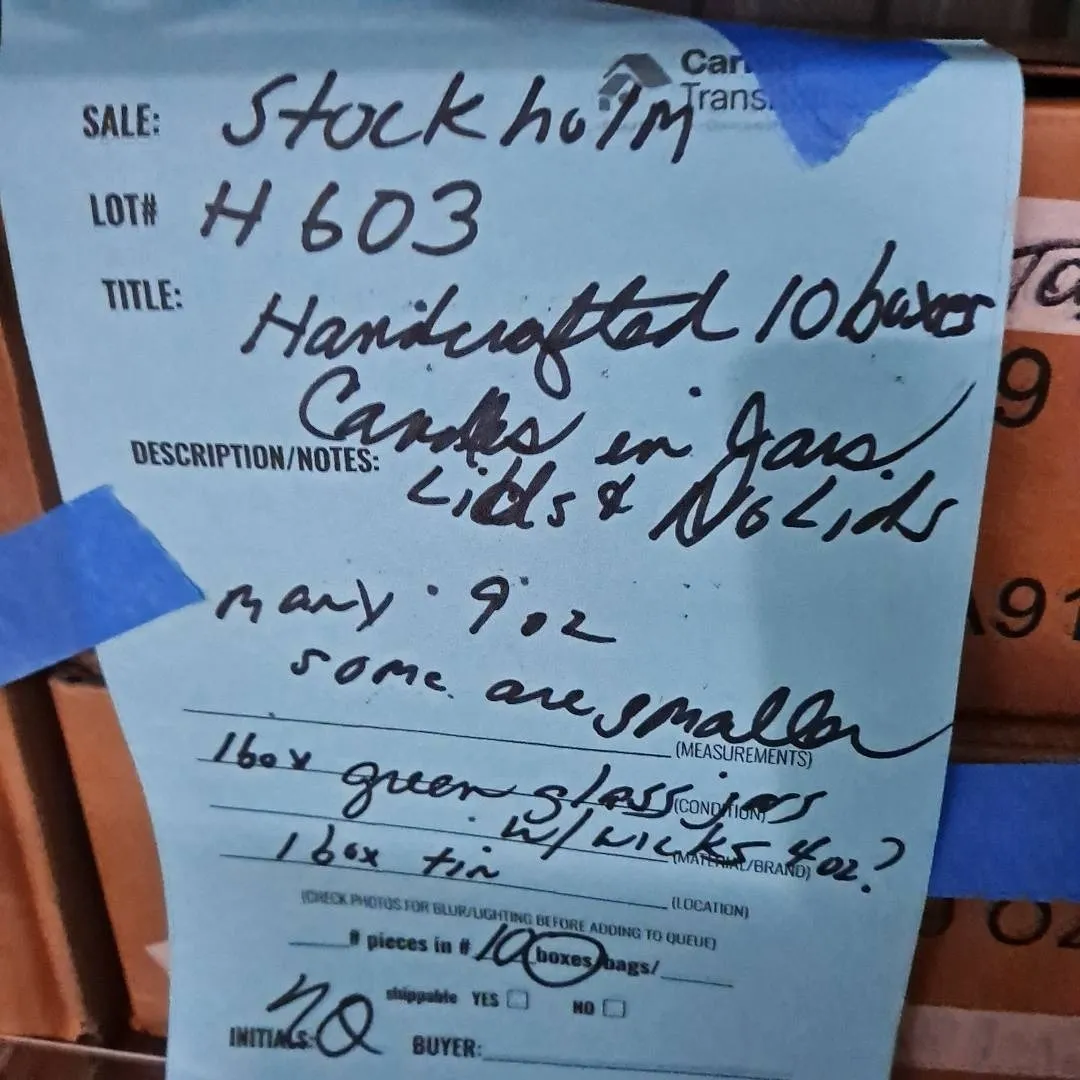 SALE: Stockholm
LOT# H 603
TITLE: Handcrafted 10 boxes
Candles in Jars
DESCRIPTION/NOTES: Lids & No Lids
many 9 oz
some are smaller
(MEASUREMENTS)
1 box green glass jars
(CONDITION)
w/ wicks 4oz?
(MATERIAL/BRAND)
1 box tin
(LOCATION)
(CHECK PHOTOS FOR BLUR/LIGHTING BEFORE ADDING TO QUEUE)
# pieces in # 10 boxes/bags/
shippable YES NO
INITIALS:
BUYER:
9
A91